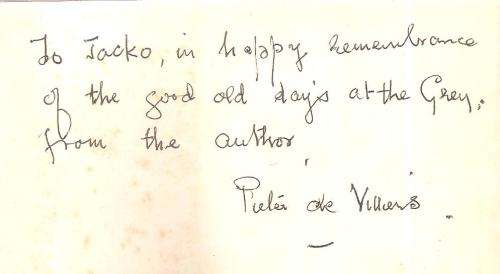 To Jacko, in happy remembrance
of the good old days at the Grey,
from the author,
Pieter de Villiers.